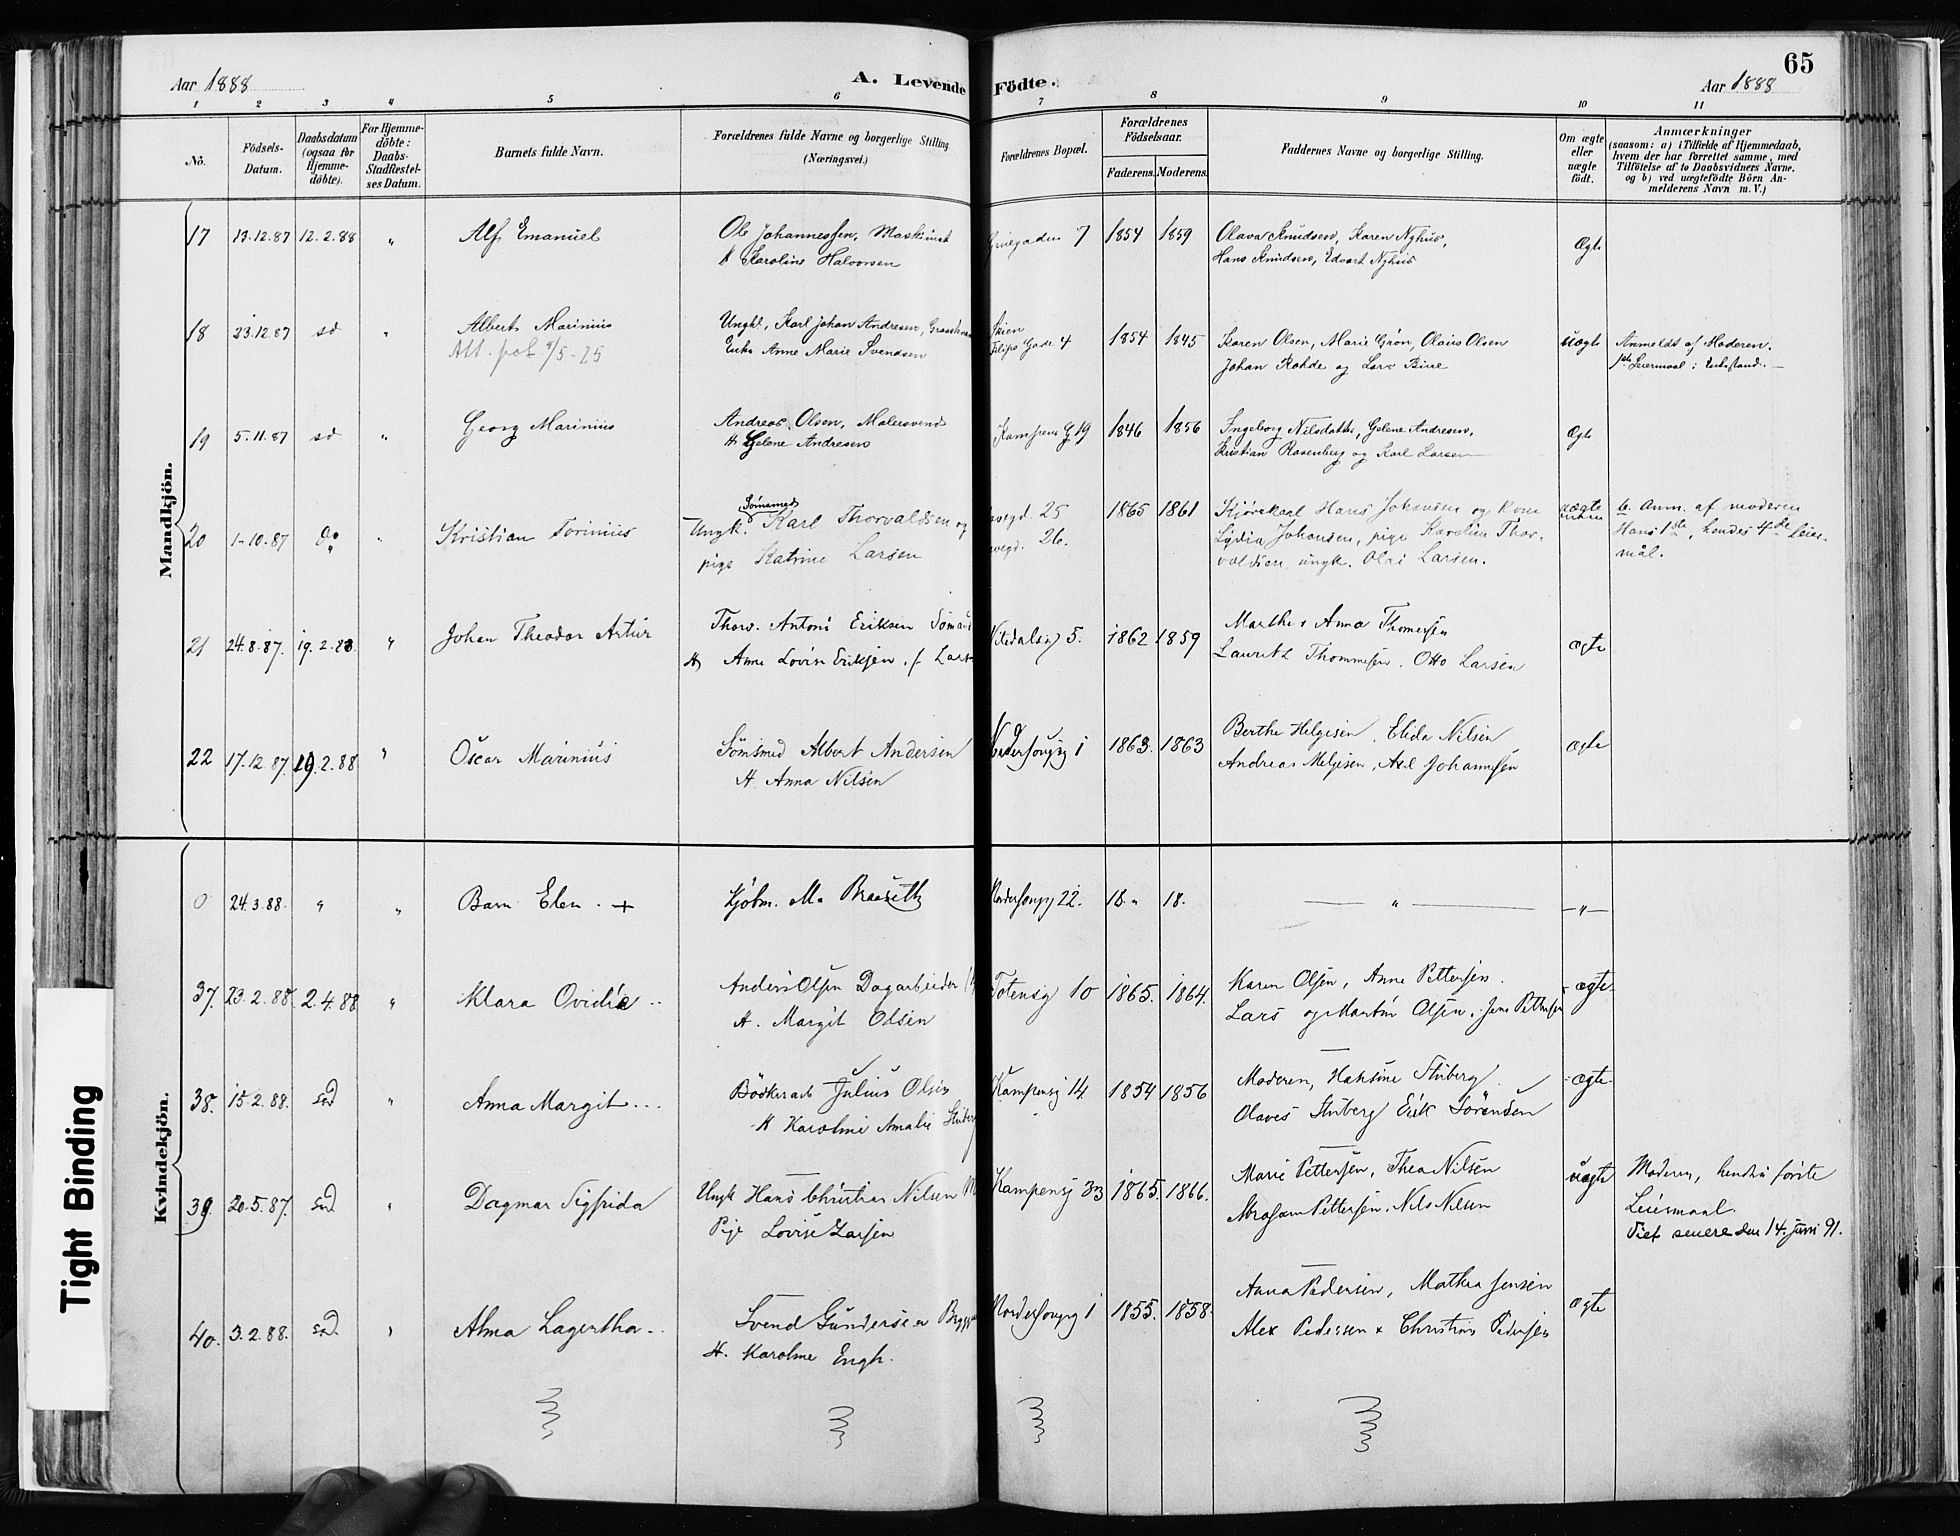 65
Aar 1888
A. Levende Födte.
Aar 1888
1 2 3 4 5 6 7 8 9 10 11
No.
Födsels-
Datum.
Daabsdatum
(ogsaa for
Hjemme-
döbte).
For Hjemme-
döbte:
Daabs-
Stadfæstel-
ses Datum.
Barnets fulde Navn.
Forældrenes fulde Navne og borgerlige Stilling
(Næringsvei.)
Forældrenes Bopæl.
Forældrenes
Födselsaar.
Faderens. Moderens.
Faddernes Navne og borgerlige Stilling.
Om ægte
eller
uægte
födt.
Anmærkninger
(saasom: a) i Tilfælde af Hjemmedaab,
hvem der har forrettet samme, med
Tilföielse af to Daabsvidners Navne.
og b) ved uægtefödte Börn An-
melderens Navn m. V.)
Mandkjön.
17 13.12.87 12.2.88 " Alf Emanuel
Ole Johannessen, Maskinist
Karoline Halvorsen
7 1854 1859
Olava Knudsen, Karen Nyhus,
Hans Knudsen, Edvart Nyhus
Ægte
18 23.12.87 sd " Albert Marinius
Att. pol. 9/5-25
Ungkl, Karl Johan Andresen,
Enke Anne Marie Svendsen
Skien
Filips Gade 4
1854 1845
Karen Olsen, Marie Grøn, Olaus Olsen
Johan Rohde og Lars
uægte
Anmeldt af Moderen.
Leiermaal i Enkestand.
19 5.11.87 sd " Georg Marinius
Andreas Olsen, Malersvend
H Gelene Andresen
Kampens G 19
1846 1856
Ingeborg Nilsdatter, Gelene Andresen,
Kristian Rosenberg og Karl Larsen
Ægte
20 1-10.87 Do " Kristian Torinius
Sömmed
Ungk. Karl Thorvaldsen og
pige Katrine Larsen
25
26.
1865 1861
Kjørekarl Hans Johansen og Kone
Lydia Johansen, pige Karoline Thor-
valdsen, ungk. Olai Larsen.
uægte
b. Anm. af moderen
Hans 1ste, hendes 4de leier-
mål.
21 24.8.87. 19.2.88. " Johan Theodor Artur
Thorv. Anton Eriksen Sömand
H Anne Lovise Eriksen f. Lars
5. 1862 1859
Marthe & Anna Thomesen
Laurits Thommesen, Otto Larsen
ægte
22 17.12.87. 19.2.88 " Oscar Marinius
Sömsmed Albert Andersen
H. Anna Nilsen
1 1863. 1863
Berthe Helgesen, Elida Nilsen
Andreas Helgesen, Axel Johannsen
ægte
Kvindekjön.
0 24.3.88. " " Barn Elen +
Kjöbm. M. Braaseth
22. 18 " 18.
— " —
— " —
37. 23.2.88. 2.4.88 " Klara Ovidia
Anders Olsen Dagarbeider
H. Margit Olsen
Totensg 10 1865. 1864.
Karen Olsen, Anne Pettersen.
Lars og Martin Olsen, Jens Pettersen
ægte
38. 15.2.88. sd " Anna Margit ...
Bödker Julius Olsen
H Karoline Amalie Stuberg
Kampensg 14 1854 1856
Moderen, Hansine Stuberg
Olaves Stuberg Erik Sörensen
ægte
39. 20.5.87. sd " Dagmar Sigfrida
Ungk Hans Christian Nilsen
Pige Lovise Larsen
Kampensg 33 1865. 1866.
Marie Pettersen, Thea Nilsen
Abraham Pettersen, Nils Nilsen
uægte
Moderen, hendes første
Leiermaal
Viet senere den 14. juni 91.
40. 3.2.88. sd " Alma Lagertha
Svend Gundersen
H. Karoline Engh.
1 1855. 1858.
Anna Pedersen, Mathea Jensen
Alex Pedersen & Christian Pedersen
Ægte
Tight Binding